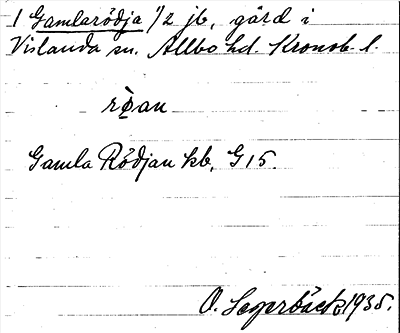 1 Gamlarödja 1/2 jb, gård i
Vislanda sn, Allbo hd. Kronob. l.
Gamla Rödjan kb, G 15.
O. Segerbäck 1935.